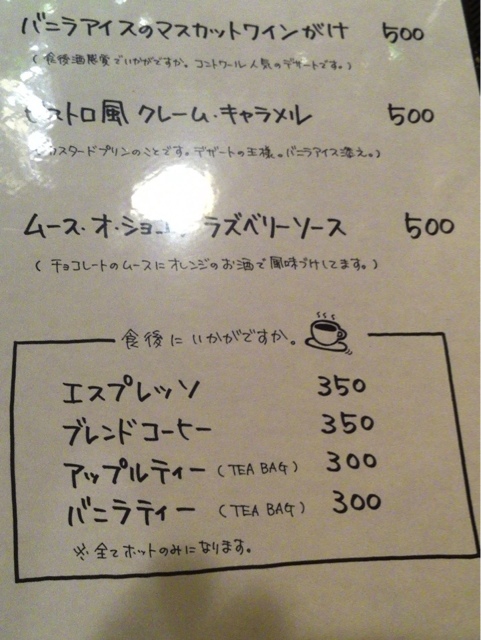 バニラアイスのマスカットワインがけ 500
(食後酒感覚でいかがですか。コントワール人気のデザートです。)
ストロ風 クレーム・キャラメル 500
カスタードプリンのことです。デザートの王様。バニラアイス添え。)
ムース・オ・ショコ ラズベリーソース 500
(チョコレートのムースにオレンジのお酒で風味づけしてます。)
食後にいかがですか。
エスプレッソ 350
ブレンドコーヒー 350
アップルティー (TEA BAG) 300
バニラティー (TEA BAG) 300
※全てホットのみになります。